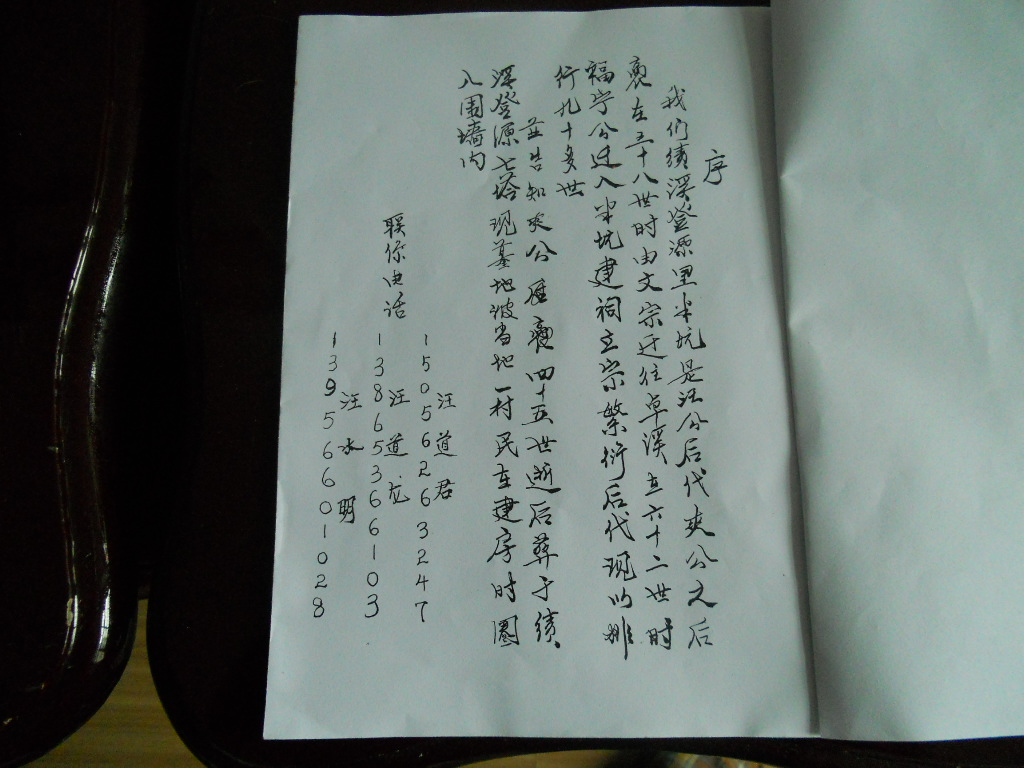 序
我们绩溪登源里半坑是汪公后代爽公之后
裔在三十八世时由文宗迁往卓溪在六十二世时
福宁公迁入半坑建祠立宗繁衍后代现以排
行九十多世
并告知爽公座裔四十五世逝后葬于绩
溪登源七塔现墓地被当地一村民在建房时圈
入围墙内
联系电话
汪道君
15056263247
汪道龙
13865366103
汪水明
13956601028